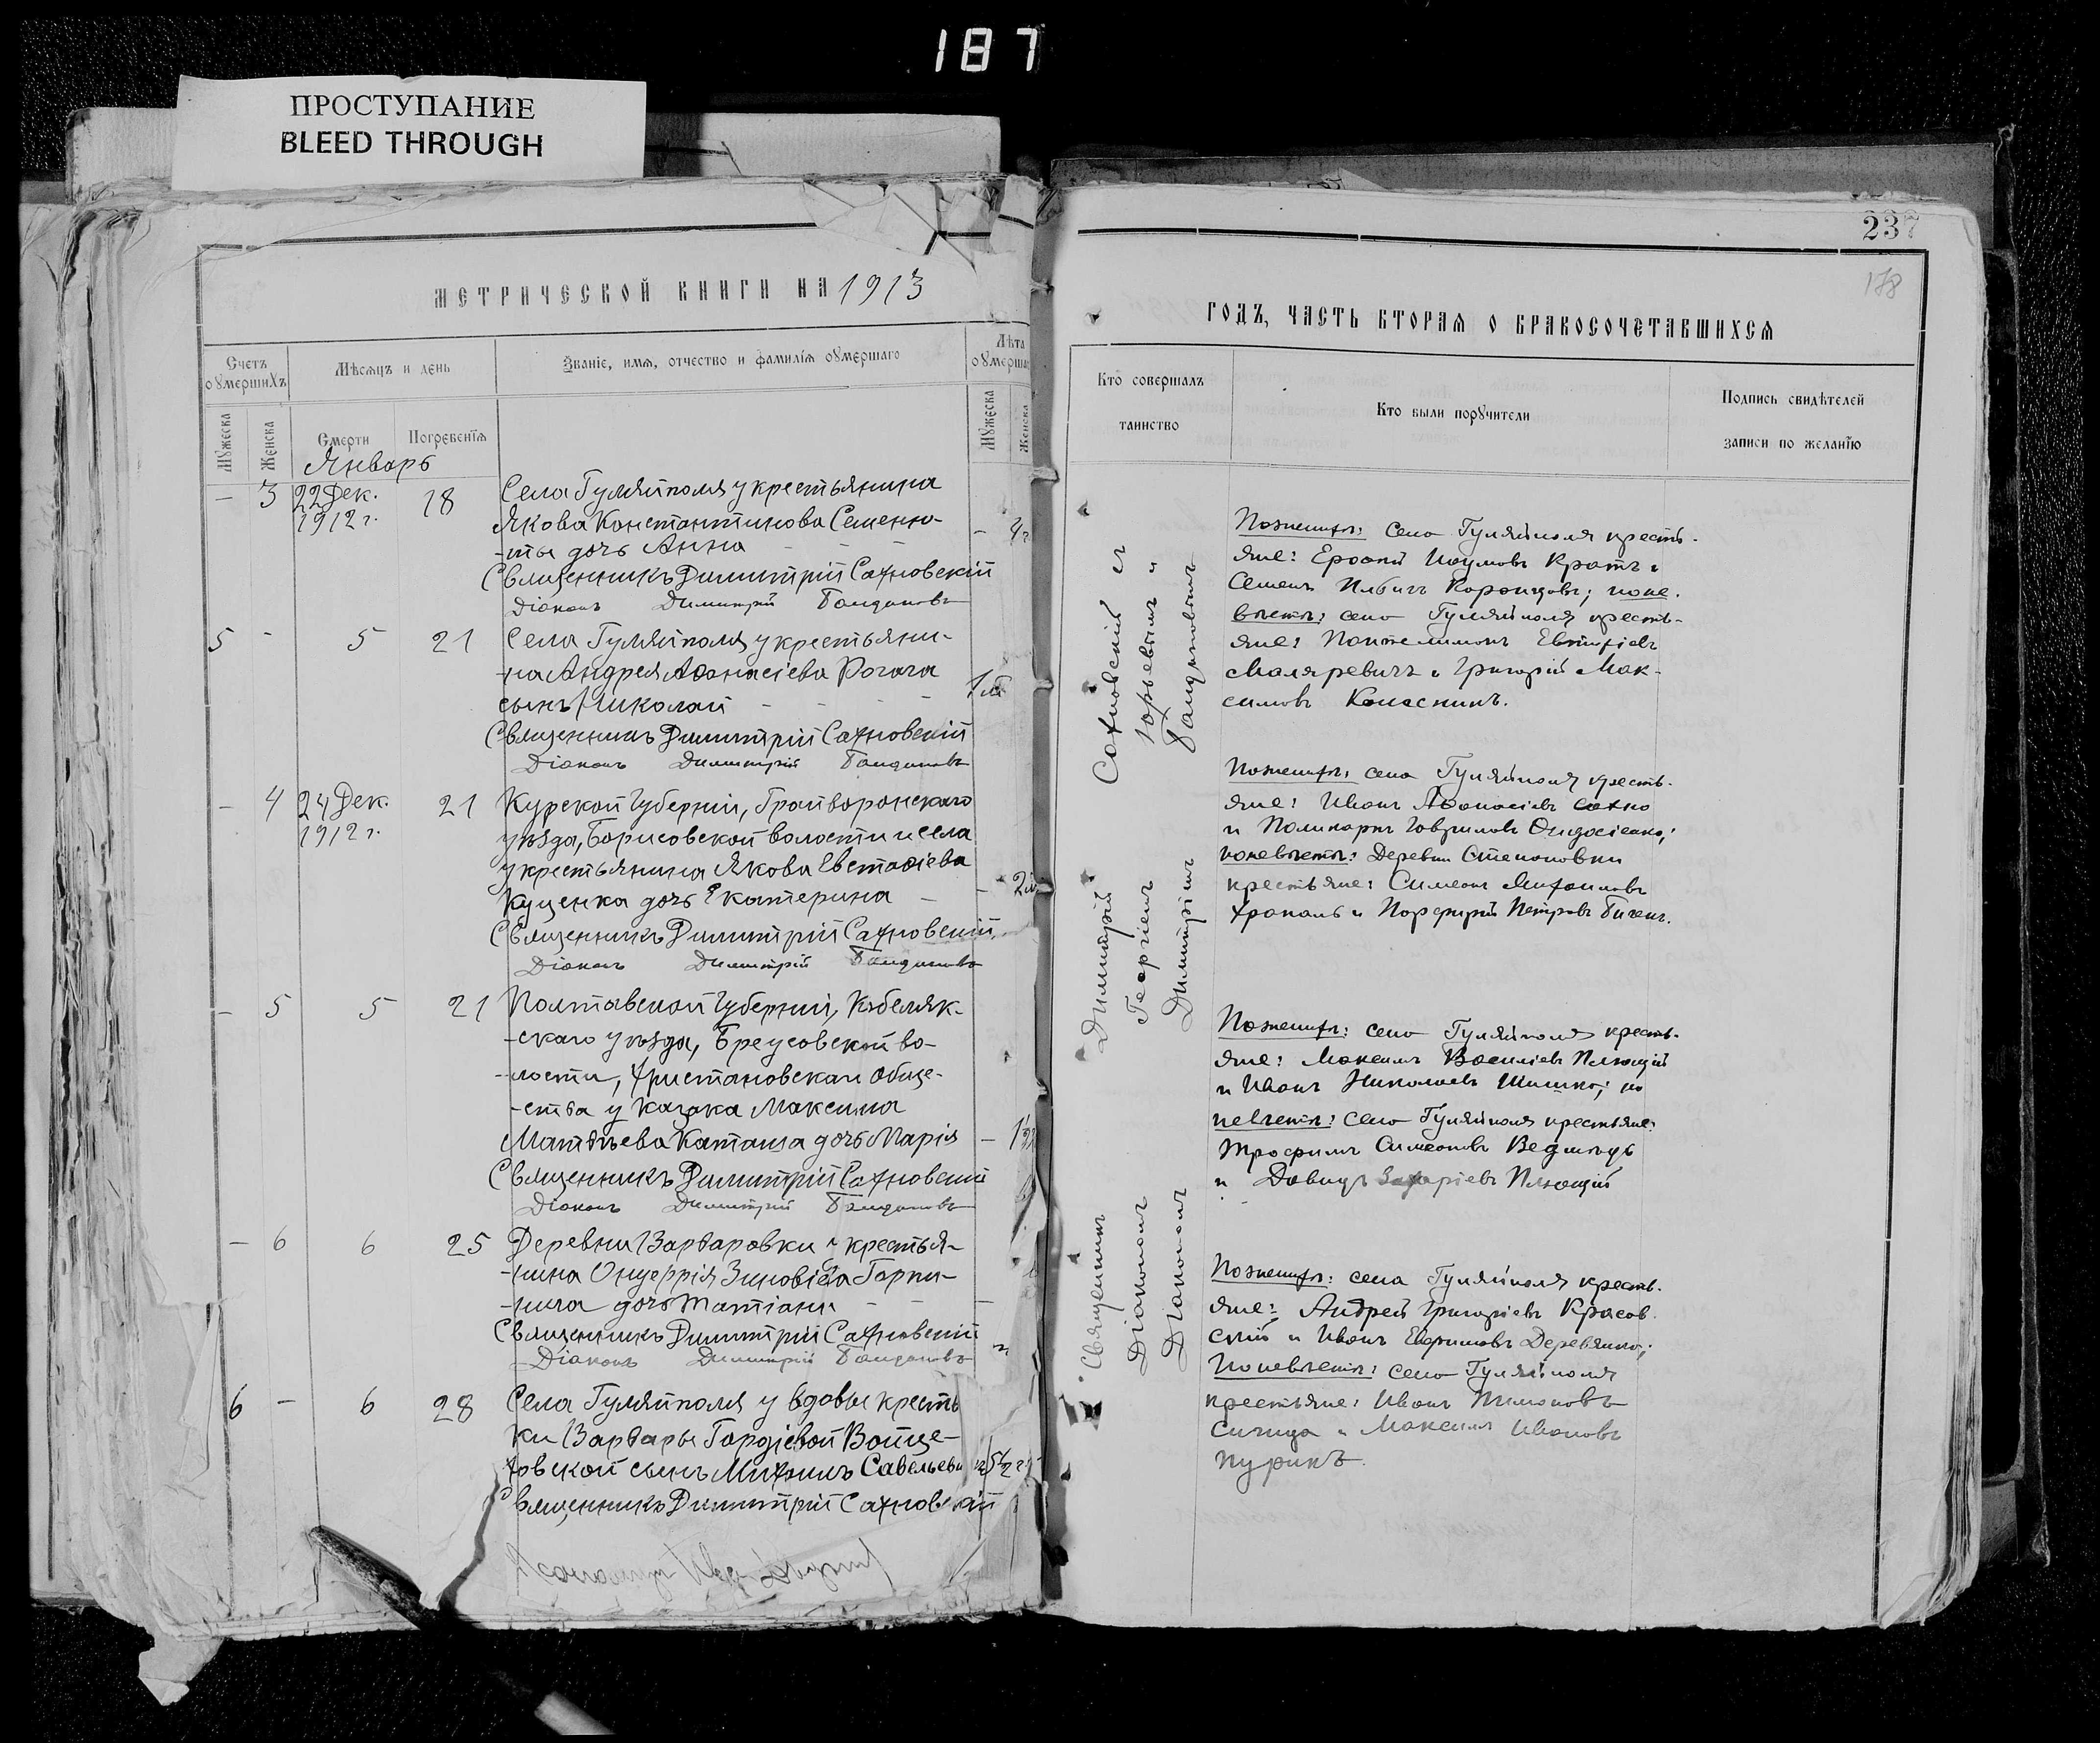 187
ПРОСТУПАНИЕ
BLEED THROUGH
МЕТРИЧЕСКОЙ КНИГИ НА 1913
Счетъ
оумершихъ
Мѣсяцъ и день
Званіе, имя, отчество и фамилія оумершаго
Лѣта
оумерша
Мужеска
Женска
Смерти
Погребенія
Мужеска
Женска
Январь
- 3 22 Дек. 18 Села Гуляйполя у крестьянина
1912 г. Якова Константинова Семеню-
-ты дочь Анна - 4 г
Священникъ Димитрій Сахновскій
Діаконъ Димитрій Бандиновъ
5 - 5 21 Села Гуляйполя у крестьяни-
-на Андрея Аѳонасіева Рогача
сынъ Николай 1 м
Священникъ Димитрій Сахновскій
Діаконъ Димитрій Бандиновъ
- 4 24 Дек. 21 Курской Губерніи, Грайворонскаго
1912 г. уѣзда, Борисовской волости и села
у крестьянина Якова Евстаѳіева
Куценка дочь Екатерина - 2 м
Священникъ Димитрій Сахновскій
Діаконъ Димитрій Бандиновъ
- 5 5 21 Полтавской Губерніи, Кобеляк-
-скаго уѣзда, Бреусовской во-
-лости, Христановскаи обще-
-ства у казака Максима
Матѳѣева Каташа дочь Марія -
Священникъ Димитрій Сахновскій
Діаконъ Димитрій Бандиновъ
- 6 6 25 Деревни Варваровки у крестья-
-нина Онуфрія Зиновіева Горпи-
-нича дочь Татіана
Священникъ Димитрій Сахновскій
Діаконъ Димитрій Бандиновъ
6 - 6 28 Села Гуляйполя у вдовы кресть
ки Варвары Гордіевой Войце-
ховской сынъ Михаилъ Савельевъ
Священникъ Димитрій Сахновскій
237
178
ГОДЪ, ЧАСТЬ ВТОРАЯ О БРАКОСОЧЕТАВШИХСЯ
Кто совершалъ
таинство
Кто были поручители
Подпись свидѣтелей
записи по желанію
Священникъ Димитрій Сахновскій съ
Діакономъ Георгіемъ Юрьевымъ и
Діакономъ Димитріемъ Бандиновымъ
По женихѣ: села Гуляйполя кресть-
яне: Ерофей Наумовъ Кратъ и
Семенъ Коронцовъ; по не-
вѣстѣ: села Гуляйполя кресть-
яне: Пантелимонъ Евтихіевъ
Маляревичъ и Григорій Мак-
симовъ Колосникъ.
По женихѣ: села Гуляйполя кресть-
яне: Иванъ Аѳонасіевъ Сахно
и Поликарпъ Гавриловъ
по невѣстѣ: Деревни Степановки
крестьяне: Симеонъ Михаиловъ
Храпаль и Порфирій Петровъ
По женихѣ: села Гуляйполя кресть-
яне: Максимъ Василіевъ Плющій
и Иванъ Николаевъ Шишко; по
невѣстѣ: села Гуляйполя крестьяне:
Трофимъ Симеоновъ Ведмѣдь
и Давидъ Захаріевъ Плющій
По женихѣ: села Гуляйполя кресть-
яне: Андрей Григоріевъ Красов-
скій и Иванъ Евфимовъ Деревянко;
По невѣстѣ: села Гуляйполя
крестьяне: Иванъ Тимоновъ
Синица и Максимъ Ивановъ
Пурикъ.